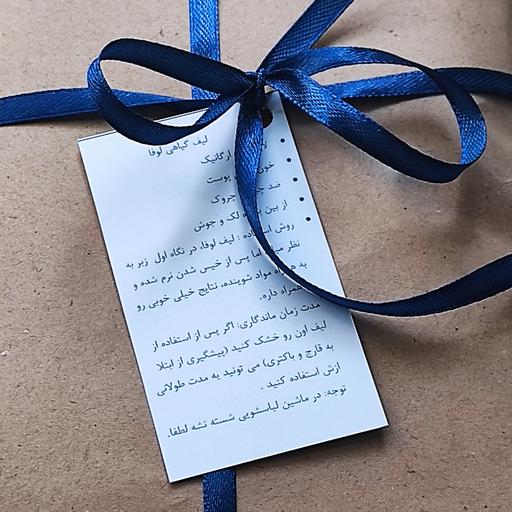 لیف گیاهی لوفا
ارگانیک
خون پوست
ضد چروک
از بین لک و جوش
روش استفاده : لیف لوفا، در نگاه اول زبر به
نظر اما پس از خیس شدن نرم شده و
به همراه مواد شوینده، نتایج خیلی خوبی رو
همراه داره.
مدت زمان ماندگاری: اگر پس از استفاده از
لیف اون رو خشک کنید (پیشگیری از ابتلا
به قارچ و باکتری) می تونید به مدت طولانی
ازش استفاده کنید .
توجه: در ماشین لباسشویی شسته نشه لطفا.